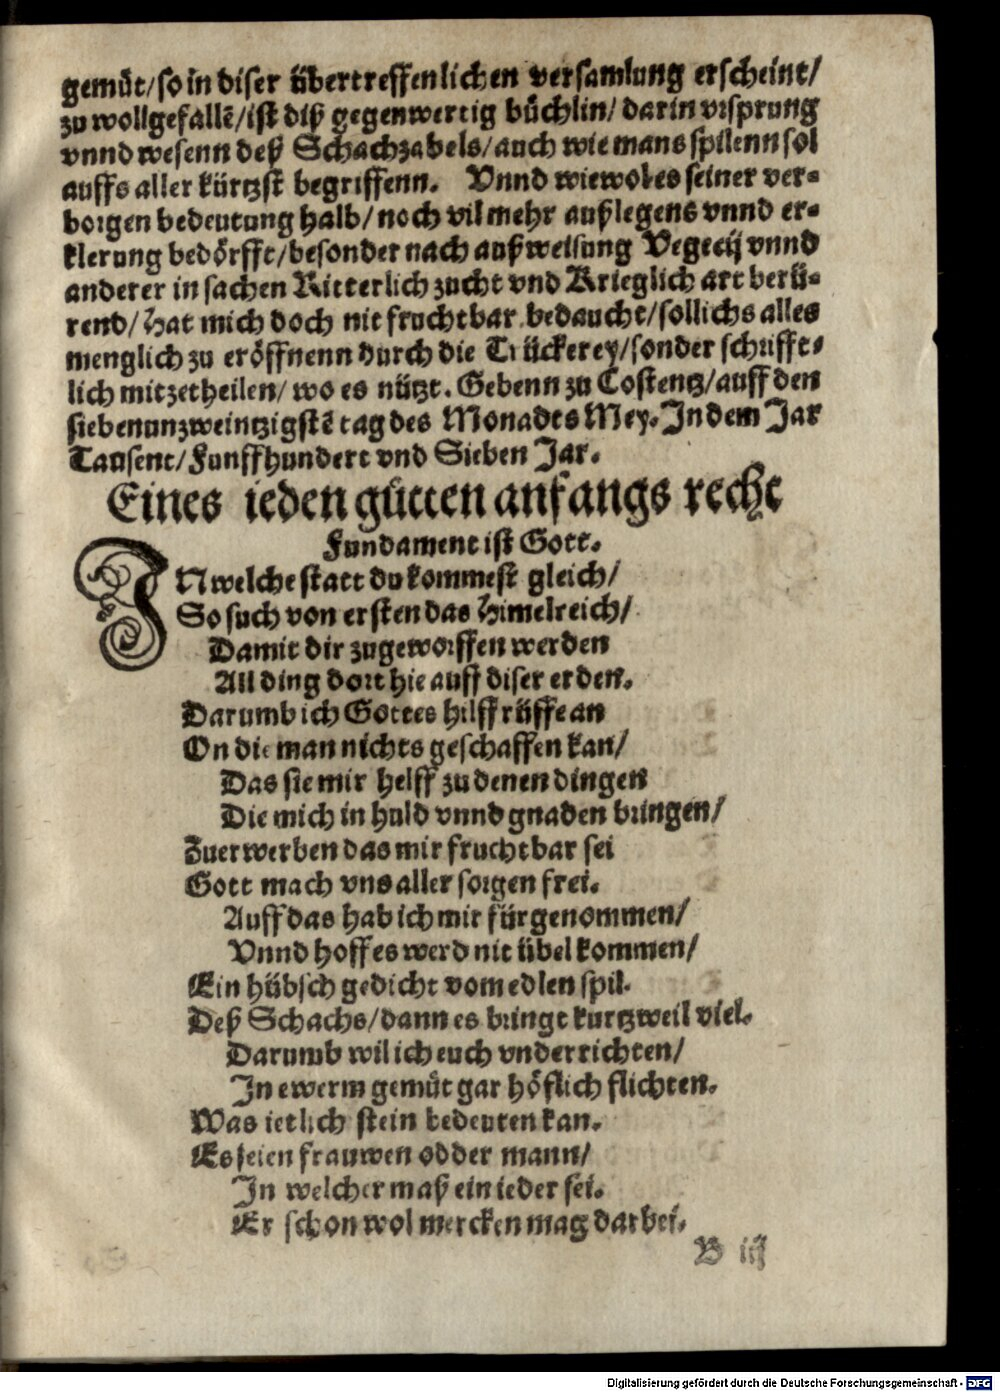 gemüt/so in diser übertreffenlichen versamlung erscheint/
zu wollgefallē/ist diß gegenwertig büchlin/darin vrsprung
vnnd wesenn deß Schachzabels/auch wie mans spilenn sol
auffs aller kürtzst begriffenn. Vnnd wiewol es seiner ver-
borgen bedeutung halb/noch vil mehr außlegens vnnd er-
klerung bedörfft/besonder nach außweisung Vegetij vnnd
anderer in sachen Ritterlich zucht vnd Krieglich art berü-
rend/hat mich doch nit fruchtbar bedaucht/sollichs alles
menglich zu eröffnenn durch die Trückerey/sonder schrifft-
lich mitzetheilen/wo es nützt. Gebenn zu Costentz/auff den
siebenunzweintzigstē tag des Monadts Mey. In dem Jar
Tausent/Funffhundert vnd Sieben Jar.
Eines ieden gütten anfangs recht
Fundament ist Gott.
IN welche statt du kommest gleich/
So such von ersten das Himelreich/
Damit dir zugeworffen werden
All ding dort hie auff diser erden.
Darumb ich Gottes hilff rüffe an
On die man nichts geschaffen kan/
Das sie mir helff zu denen dingen
Die mich in huld vnnd gnaden bringen/
Zuerwerben das mir fruchtbar sei
Gott mach vns aller sorgen frei.
Auff das hab ich mir fürgenommen/
Vnnd hoff es werd nit übel kommen/
Ein hübsch gedicht vom edlen spil.
Deß Schachs/dann es bringt kurtzweil viel.
Darumb wil ich euch vnderrichten/
In ewerm gemüt gar höflich flichten.
Was ietlich stein bedeuten kan.
Es seien frauwen odder mann/
In welcher maß ein ieder sei.
Er schon wol mercken mag darbei.
B iij
Digitalisierung gefördert durch die Deutsche Forschungsgemeinschaft - DFG